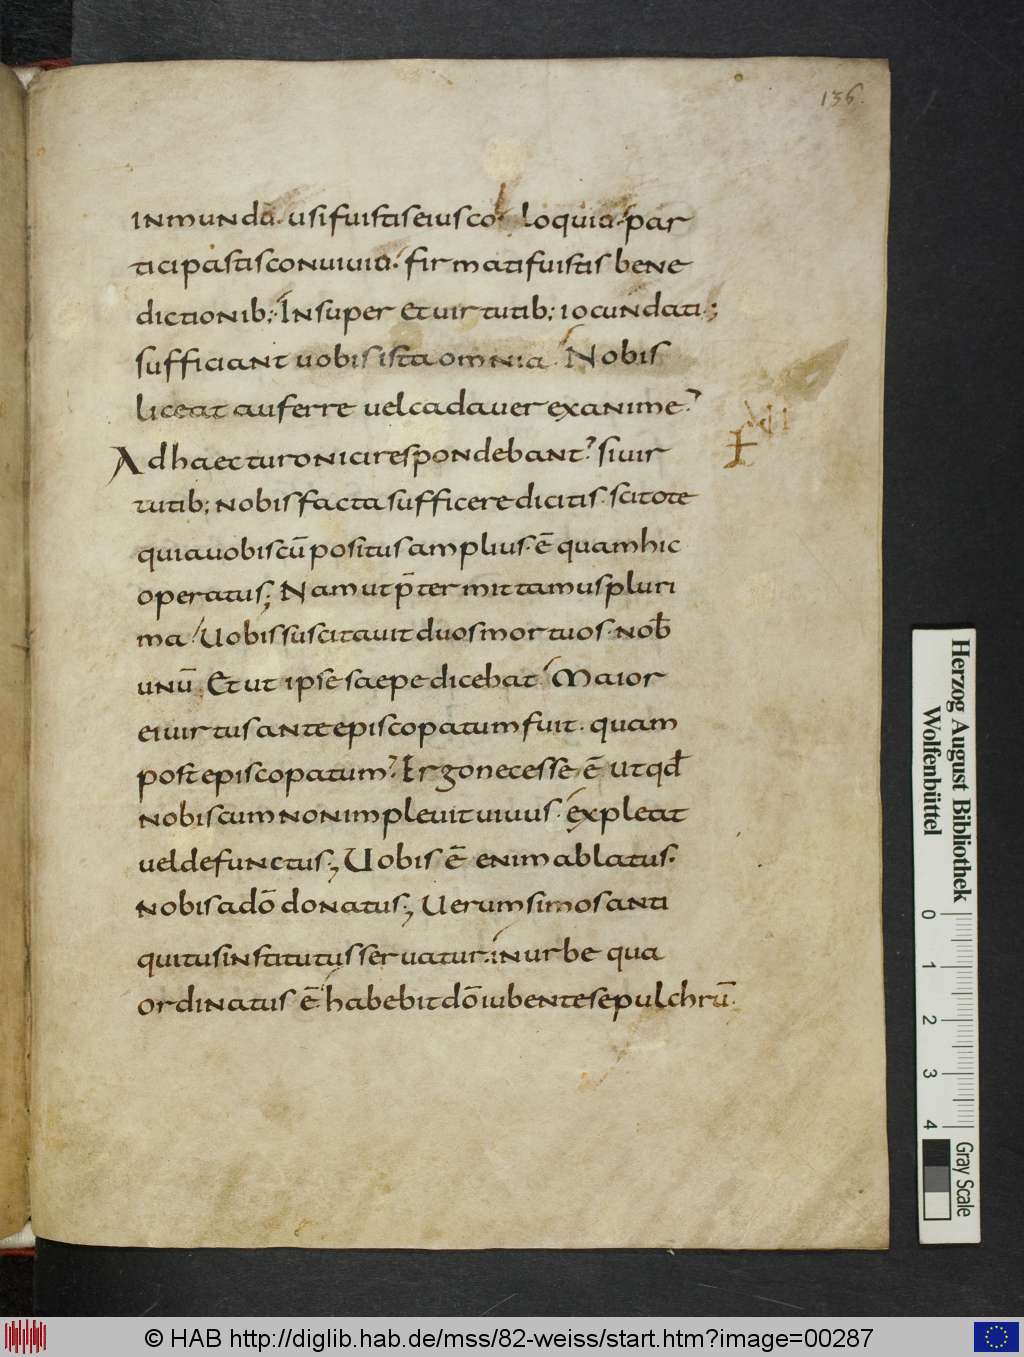 136.
inmundo. usi fuistis eius coloquio. par
ticipastis conuiuio. firmati fuistis bene
dictionib; Insuper et uirtutib; iocundati;
sufficiant uobis ista omnia. Nobis
liceat auferre uel cadauer exanime?
Ad haec turonici respondebant? si uir
tutib; nobis facta sufficere dicitis. scitote
quia uobiscū positus amplius. ē quam hic
operatus; Nam ut p̄termittamus pluri
ma. Uobis suscitauit duos mortuos. nob̄
unū. Et ut ipse saepe dicebat. Maior
ei uirtus ante episcopatum fuit. quam
post episcopatum? Ergo necesse ē ut qd̄
nobiscum non impleuit uiuus. expleat
uel defunctus; Uobis ē enim ablatus.
nobis a dō donatus; Uerum si mos anti
quitus institutus seruatur. in urbe qua
ordinatus ē. habebit dō iubente sepulchrū.
Herzog August Bibliothek
Wolfenbüttel
0 1 2 3 4
Gray Scale
© HAB http://diglib.hab.de/mss/82-weiss/start.htm?image=00287